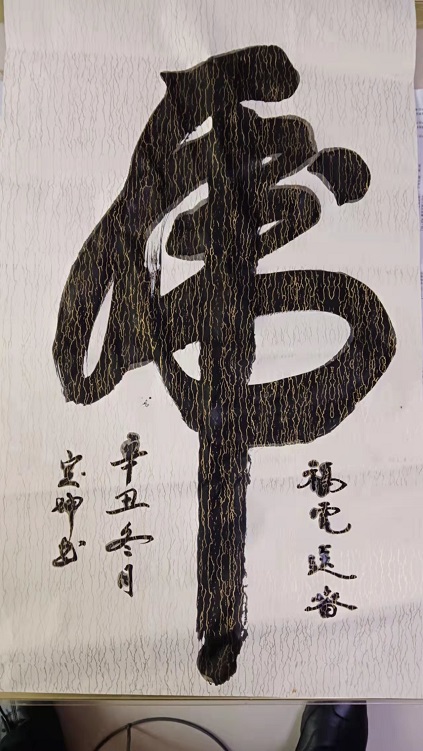 虎
福虎迎春
辛丑冬月
宝坤书